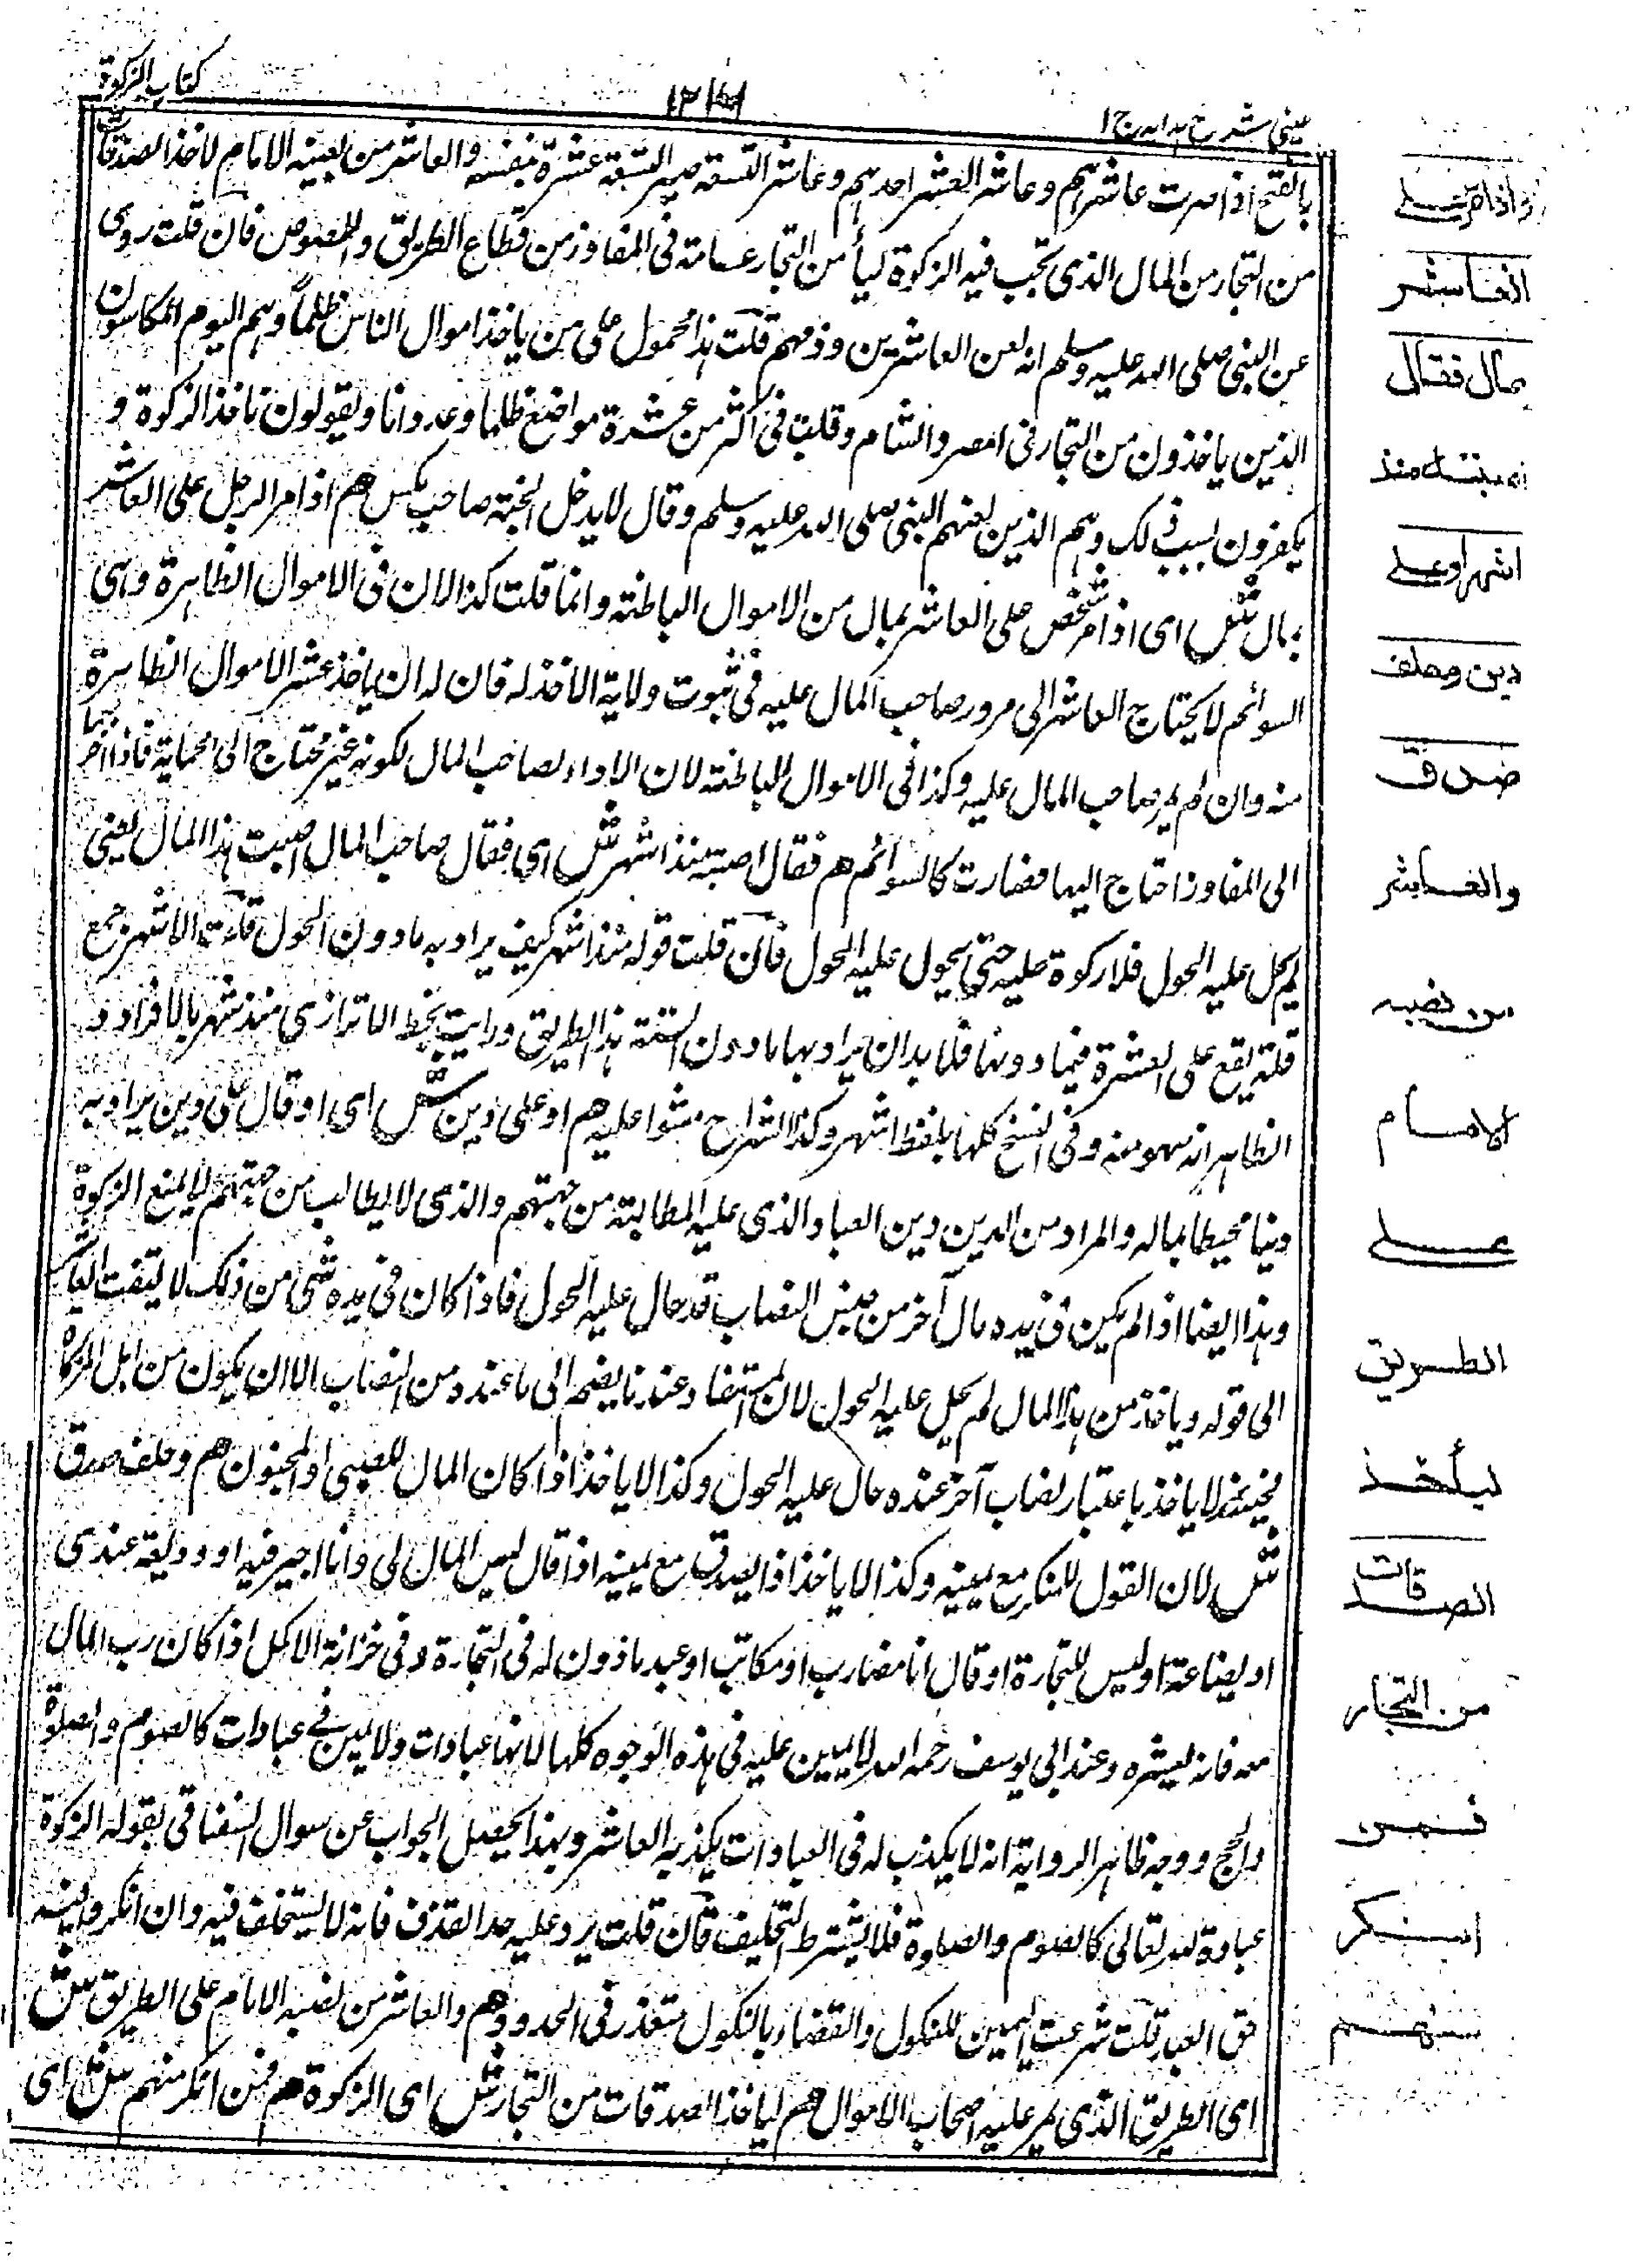 عینی شرح ہدایہ ج ۱
کتاب الزکوة
بالفتح اذا صرت عاشرہم وعاشر العشر احدہم وعاشر التسعة صیر التسعة عشرة بنفسه والعاشر من نصبه الامام لاخذ الصدقات
من التجار من المال الذی تجب فیه الزکوة لیأمن التجار عسامة فی المفاوز من قطاع الطریق واللصوص فان قلت روی
عن النبی صلی الله علیه وسلم انه لعن العاشرین وذمهم قلت ہذا محمول علی من یاخذ اموال الناس ظلماً وہم الیوم المکاسون
الذین یاخذون من التجار فی مصر والشام وقلت فی اکثر من عشرة مواضع ظلما وعدوانا ویقولون ناخذ الزکوة و
یکفرون بسبب ذلک وہم الذین لعنهم النبی صلی الله علیه وسلم وقال لا یدخل الجنة صاحب مکس هم اذا مر الرجل علی العاشر
بمال ش ای اذا مر شخص علی العاشر بمال من الاموال الباطنة وانما قلت کذا لان فی الاموال الظاہرة وہی
السوائم لا یحتاج العاشر الی مرور صاحب المال علیه فی ثبوت ولایة الاخذ له فان له ان یاخذ عشر الاموال الظاہرة
منه وان لم یمر صاحب المال علیه وکذا فی الاموال الباطنة لان الاداء لصاحب المال لکونه غیر محتاج الی الحمایة فاذا اخرجها
الی المفاوز احتاج الیها فصارت کالسوائم هم فقال اصبته منذ اشهر ش ای فقال صاحب المال اصبت ہذا المال یعنی
لم یحل علیه الحول فلا زکوة علیه حتی یحول علیه الحول فان قلت قوله منذ اشهر کیف یراد به ما دون الحول قلت الاشهر جمع
قلة یقع علی العشرة فیما دونها فلا بد ان یراد بها ما دون السنة بهذا الطریق ورایت بخط الاترازی منذ شهر بالافراد و
الظاہر انه سهو منه وفی النسخ کلها بلفظ اشهر وکذا الشراح مشوا علیه هم او علی دین ش ای او قال علی دین یراد به
دینا محیطا بماله والمراد من الدین دین العباد الذی علیه المطالبة من جهتهم والذی لا یطالب من جهتهم لا یمنع الزکوة
وہذا ایضا اذا لم یکن فی یده مال آخر من جنس النصاب قد حال علیه الحول فاذا کان فی یده شئ من ذلک لا یلتفت العاشر
الی قوله ویاخذ من ہذا المال لم یحل علیه الحول لان المستفاد عندنا یضم الی ما عنده من النصاب الا ان یکون من ابل الزکاة
فحینئذ لا یاخذ باعتبار نصاب آخر عنده حال علیه الحول وکذا لا یاخذ اذا کان المال للصبی او المجنون هم وحلف صدق
ش لان القول للمنکر مع یمینه وکذا لا یاخذ اذا یصدق مع یمینه اذا قال لیس المال لی وانا اجیر فیه او ودیعة عندی
او بضاعة او لیس للتجارة او قال انا مضارب او مکاتب او عبد ماذون له فی التجارة وفی خزانة الاکمل اذا کان رب المال
معه فانه یعشره وعند ابی یوسف رحمه الله لا یمین علیه فی ہذه الوجوه کلها لانها عبادات ولا یمین فی عبادات کالصوم والصلوة
والحج ووجه ظاہر الروایة انه لا یکذب له فی العبادات یکذبه العاشر وبهذا یحصل الجواب عن سوال السغناقی بقوله الزکوة
عبادة لله تعالی کالصوم والصلوة فلا یشترط التحلیف فان قلت یرد علیه حد القذف فانه لا یستحلف فیه وان انکر وفیه
حق العبد قلت شرعت الیمین للنکول والقضاء بالنکول متعذر فی الحدود هم والعاشر من نصبه الامام علی الطریق ش
ای الطریق الذی یمر علیه اصحاب الاموال هم لیاخذ الصدقات من التجار ش ای الزکوة هم فمن انکر منهم ش ای
واذا مر علی
العاشر
بمال فقال
اصبته منذ
اشهر او علی
دین وحلف
صدق
والعاشر
من نصبه
الامام
علی
الطریق
لیأخذ
الصدقات
من التجار
فمن
انکر
منهم